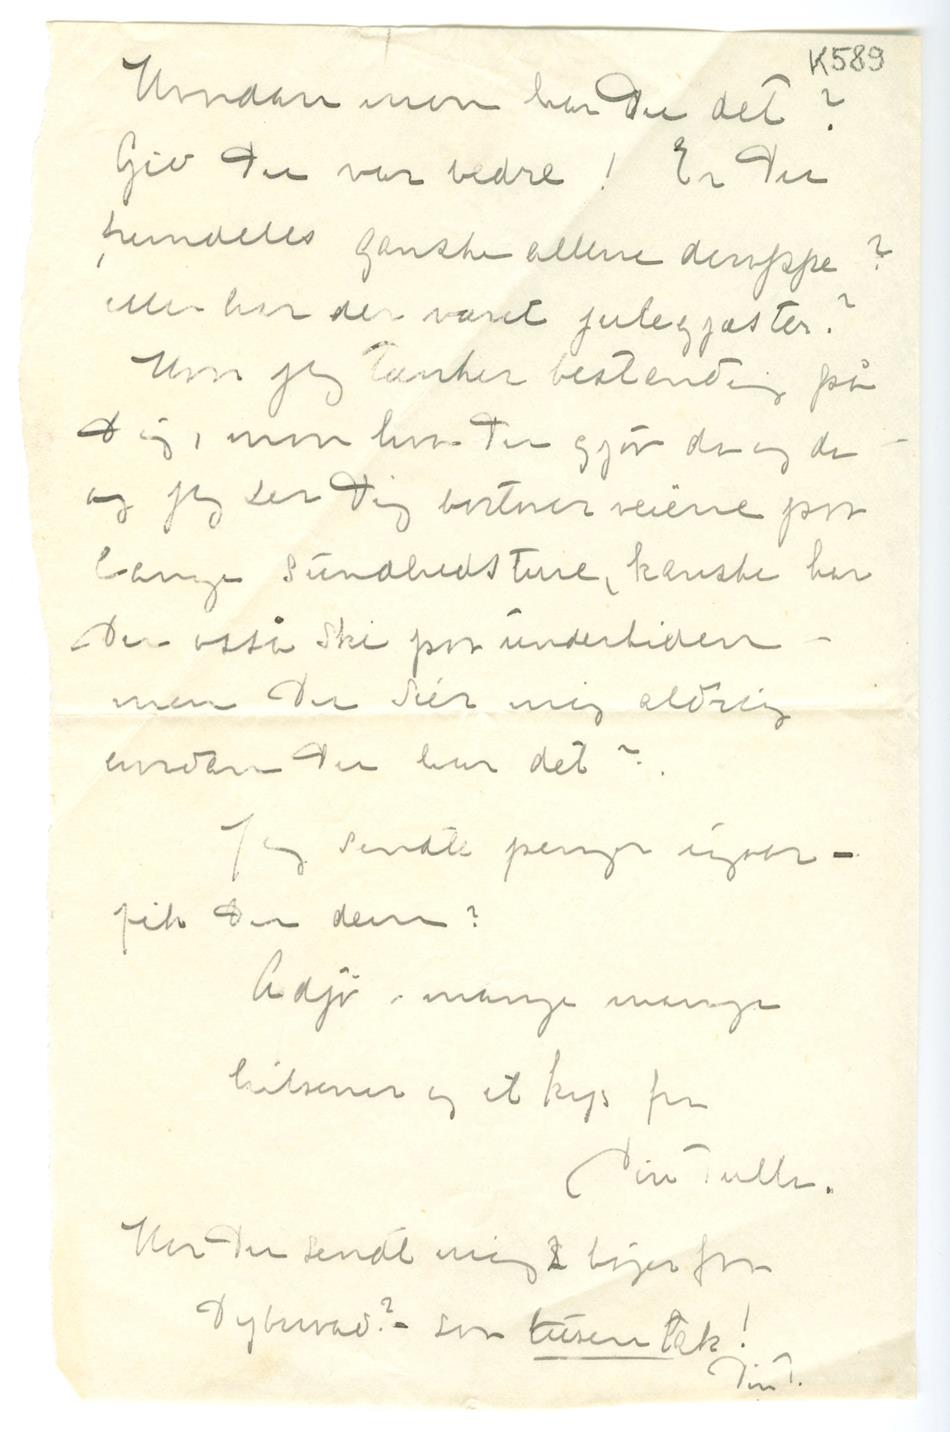 K589
Hvordan mon har Du det?
Giv Du var bedre! Er Du
fremdeles ganske allene deroppe?
eller har der været julegjæster?
Hvor jeg tænker bestandig på
Dig, mon hvor Du gjør da og da –
og jeg ser Dig bortover veiene på
lange sundhedsture, kanske har
Du også ski på undertiden –
men Du sier mig aldrig
hvordan Du har det?
Jeg sendte penge igaar –
fik Du dem?
Adjø – mange mange
hilsener og et kys fra
Din Tulla.
Har Du sendt mig 2 bøger fra
Dybwad? – saa tusen tak!
Din T.